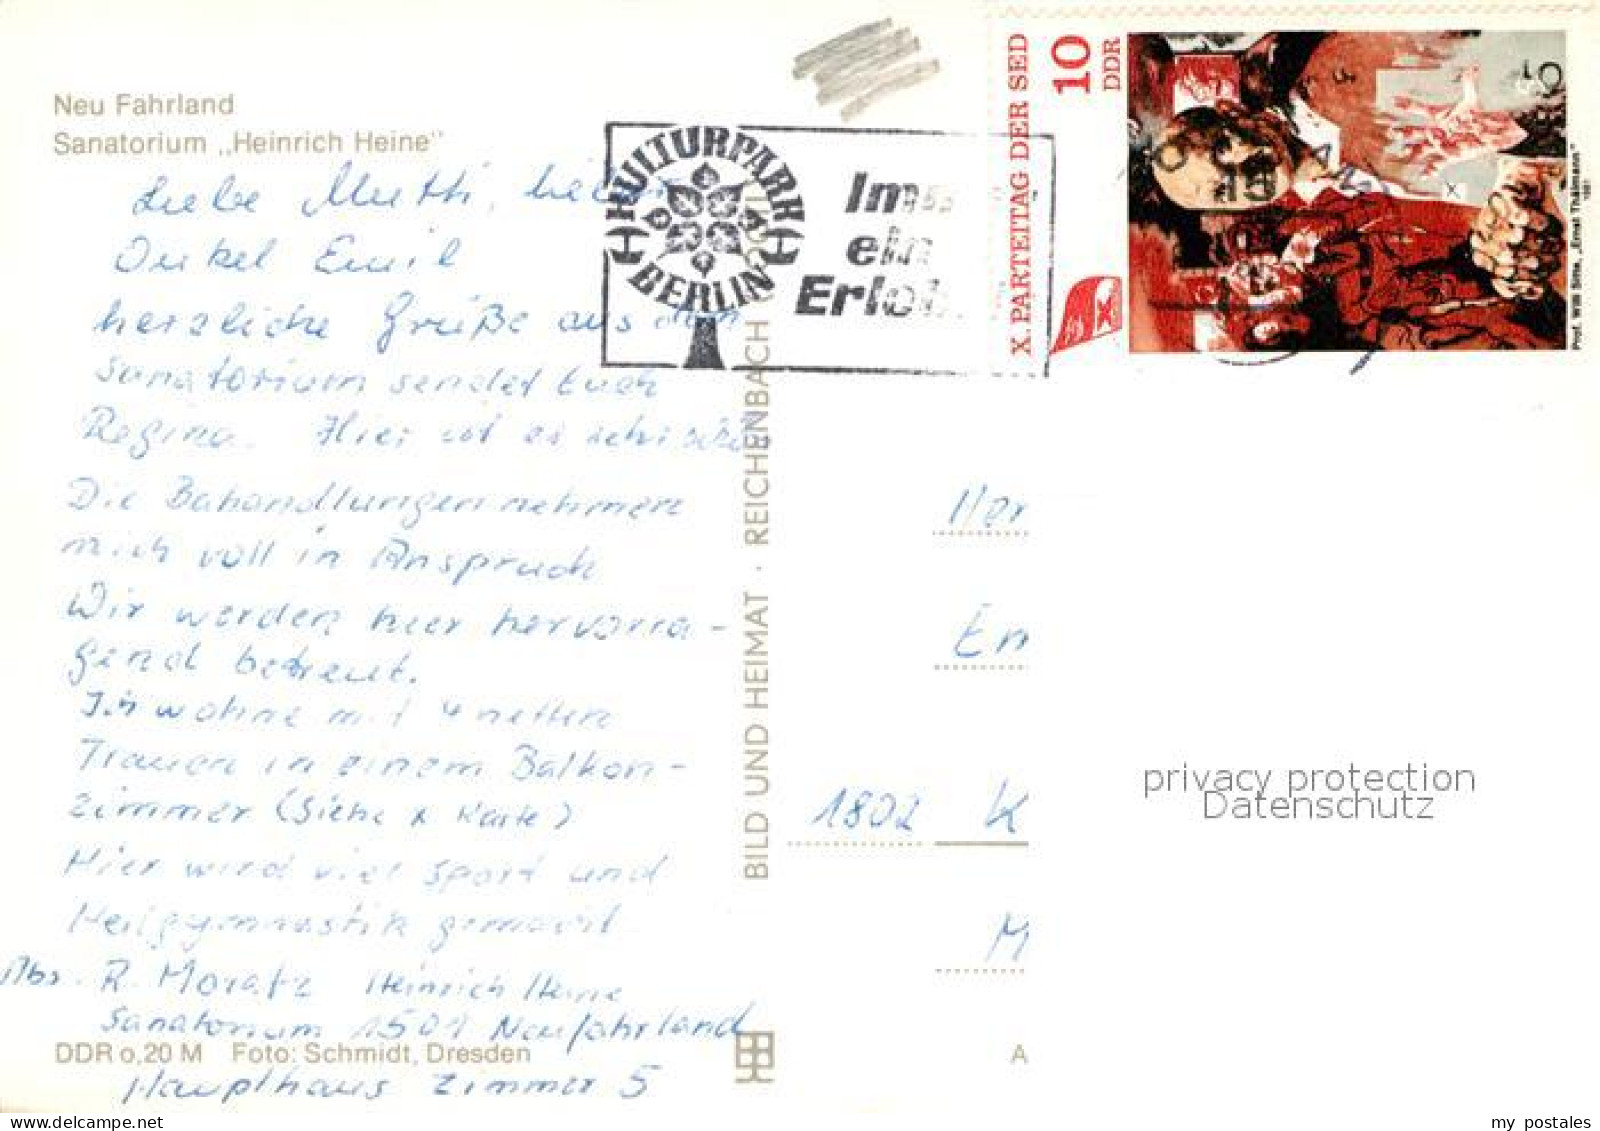 Neu Fahrland
Sanatorium „Heinrich Heine"
Liebe Mutti, lieber
Onkel Emil
herzliche Grüße aus dem
Sanatorium sendet Euch
Regina. Hier ist es sehr schön
Die Bahandlungen nehmen
mich voll in Anspruch
Wir werden hier hervorra-
gend betreut.
Ich wohne mit 4 netten
Frauen in einem Balkon-
zimmer (Siehe x Karte)
Hier wird viel Sport und
Heilgymnastik gemacht
Abs. R. Moratz Heinrich Heine
Sanatorium 1501 Neufahrland
Haupthaus Zimmer 5
DDR 0,20 M Foto: Schmidt, Dresden
BILD UND HEIMAT · REICHENBACH
KULTURPARK
BERLIN
Im
ein
Erleb
X. PARTEITAG DER SED
10
DDR
Prof. Willi Sitte, „Ernst Thälmann"
1981
Her
Em
1802 K
M
A
privacy protection
Datenschutz
delcampe.net
my_postales